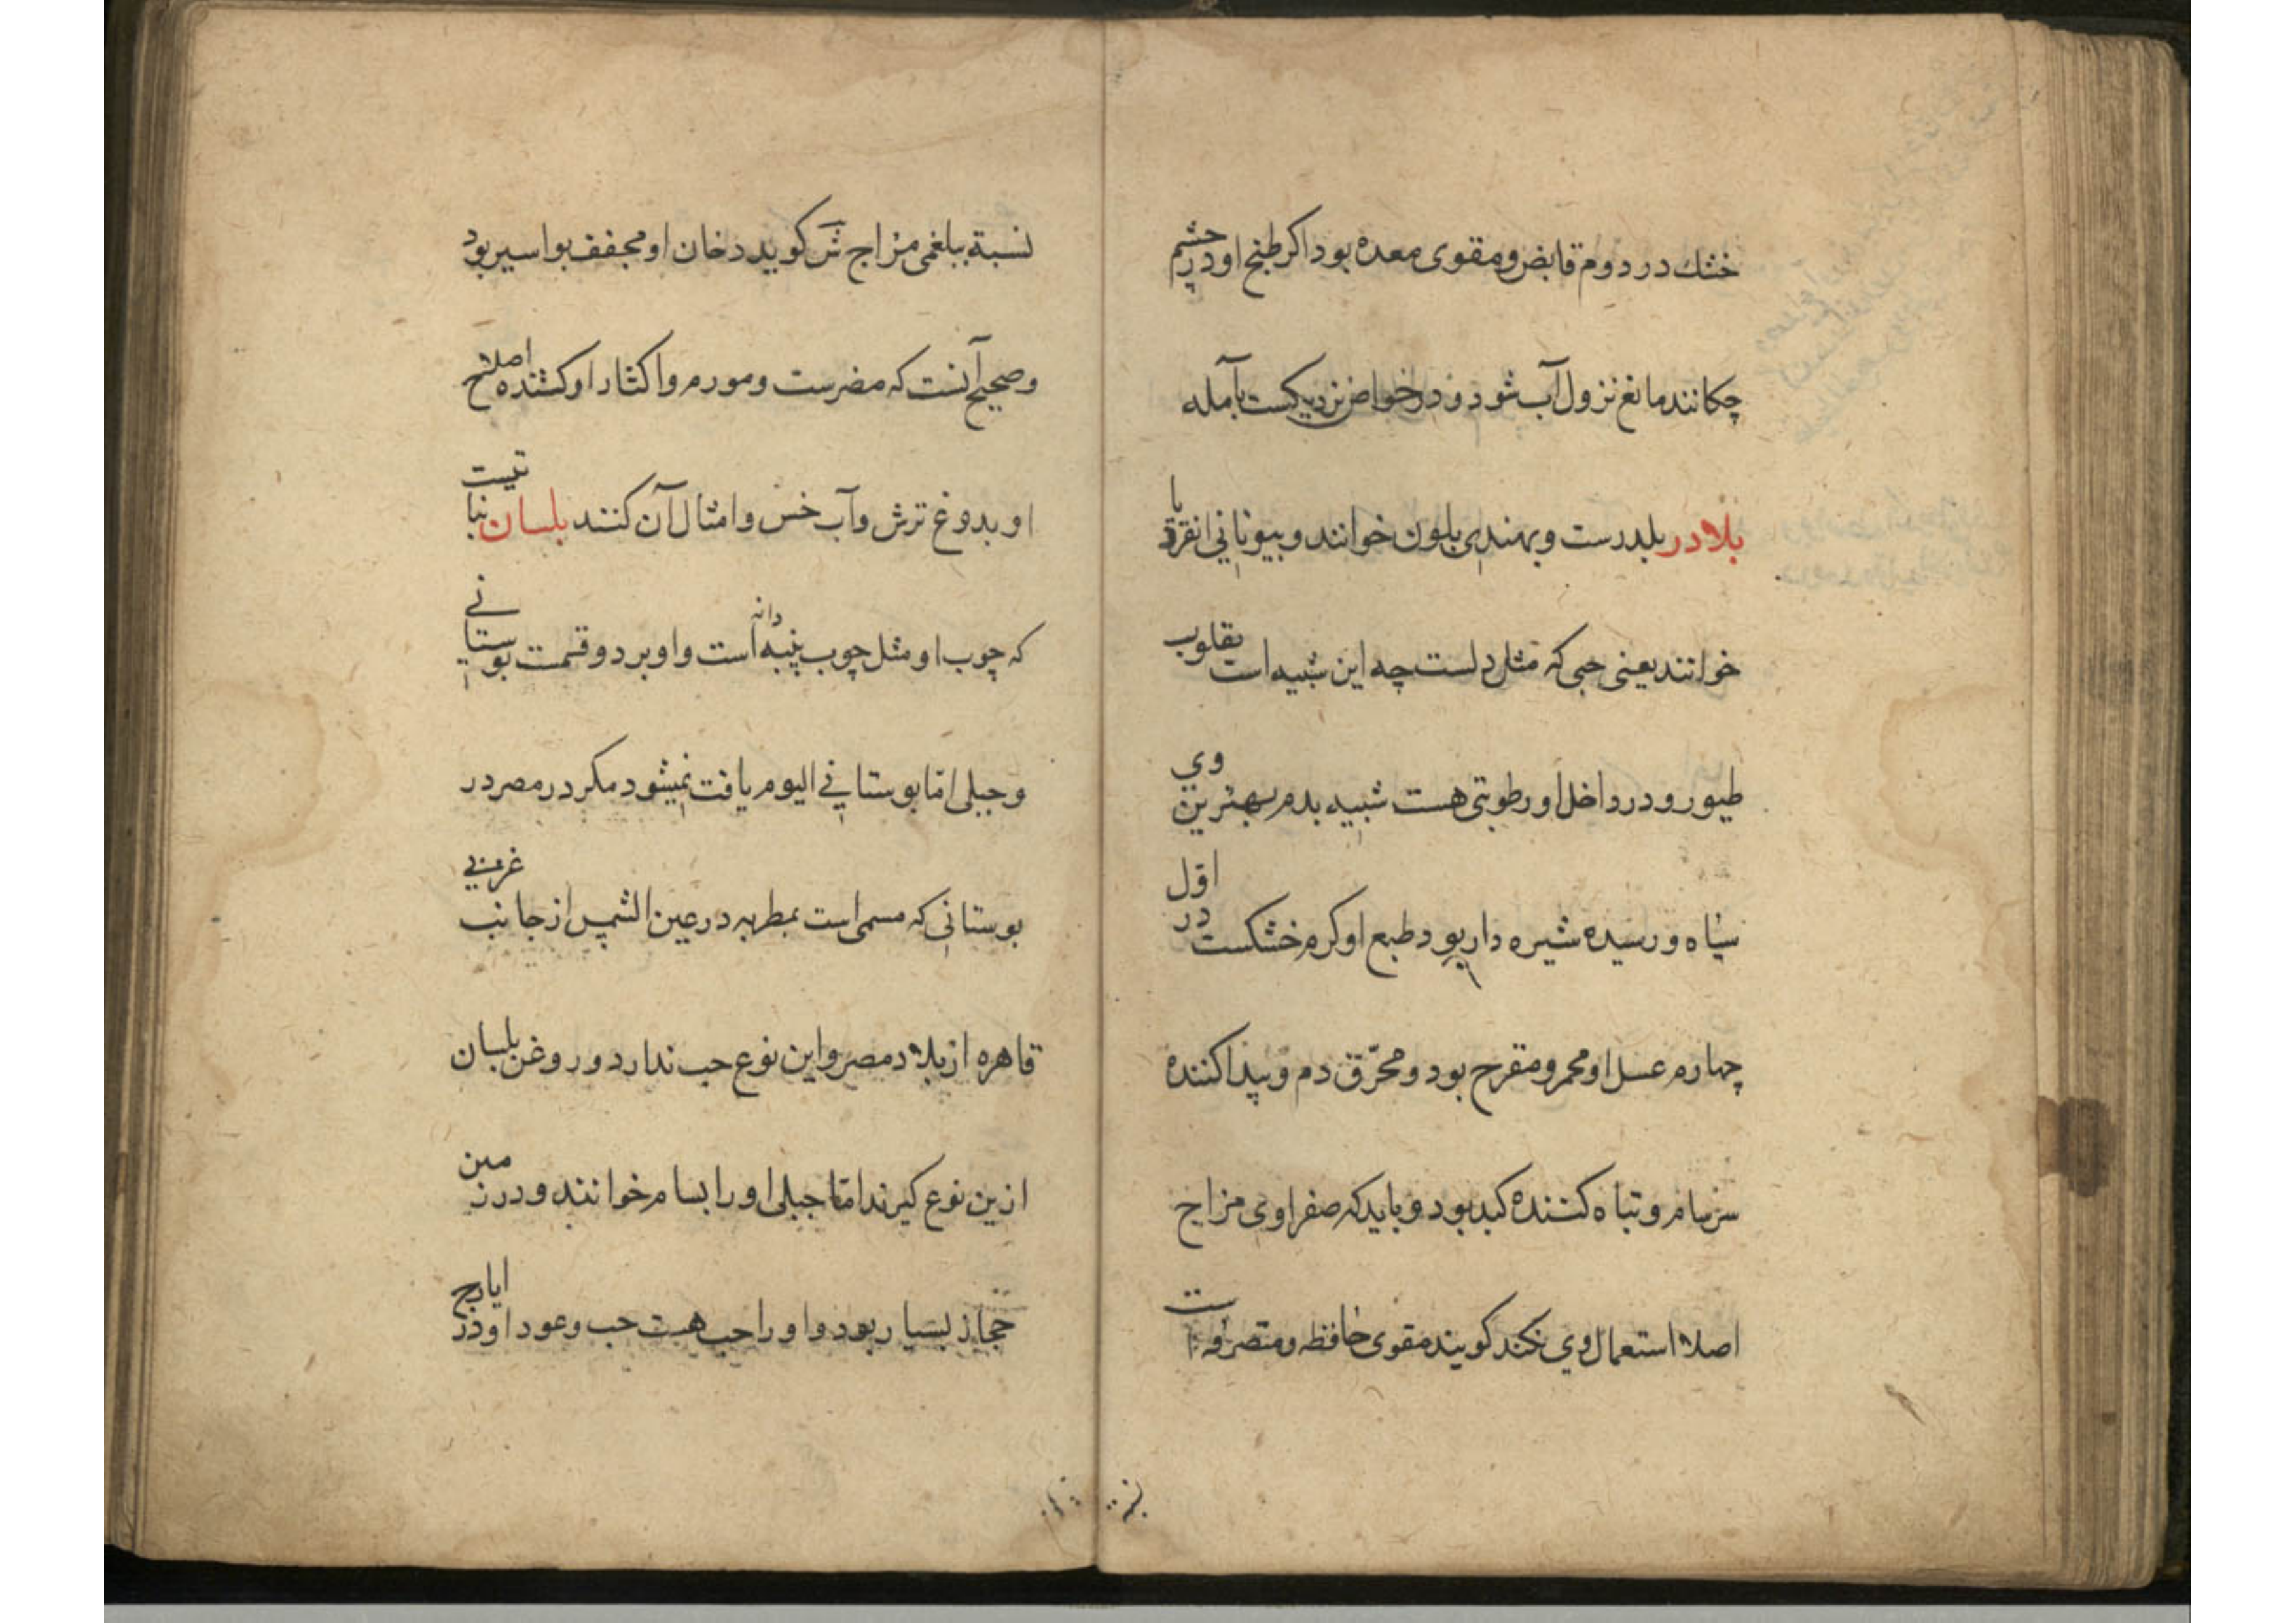 خشك در دوم قابض و مقوی معده بود اكر طبخ او در چشم
چکانند مانع نزول آب شود و در خواص نزدیکست بآمله
بلادر بلدرست و بهندی بلون خوانند و بیونانی انقرذیا
خوانند یعنی حبی که مثل دلست چه این شبیه است بقلوب
طیور و در داخل او رطوبتی هست شبیه بدم بهترین وی
سیاه و رسیده شیره دار بود طبع او کرم خشکست در اول
چهارم عسل او محمر و مقرح بود و محرّق دم و پیدا کننده
سرسام و تباه کننده کبد بود و باید که صفراوی مزاج
اصلا استعمال وی نکند کویند مقوی حافظه و متصرفه است
نسبة ببلغمی مزاج ش کوید دخان او مجفف بواسیر بود
و صحیح آنست که مضرست و مورم و اکثار او کشنده اصلاح
او بدوغ ترش و آب خس و امثال آن کنند بلسان نباتیست
که چوب او مثل چوب پنبه دانه است و او بر دو قسمت بوستانی
و جبلی امّا بوستانی الیوم یافت نمیشود مکر در مصر در
بوستانی که مسمی است بمطریه در عین الشمس از جانب غربی
قاهره از بلاد مصر و این نوع حب ندارد و روغن بلسان
ازین نوع کیرند امّا جبلی او را بسام خوانند و در زمین
حجاز بسیار بود و او را حب هست حب و عود او در ایارج